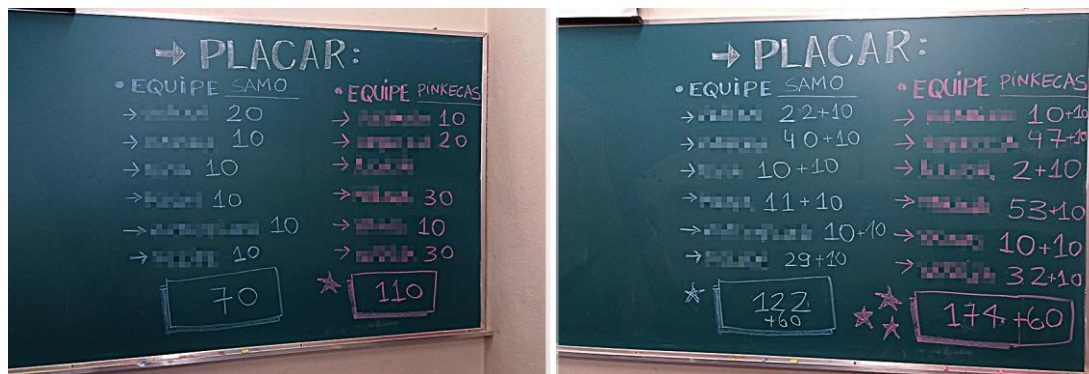 → PLACAR:
• EQUIPE SAMO
→ 20
→ 10
→ 10
→ 10
→ 10
→ 10
70
• EQUIPE PINKECAS
→ 10
→ 20
→
→ 30
→ 10
→ 30
110
→ PLACAR:
• EQUIPE SAMO
→ 22+10
→ 40+10
→ 10+10
→ 11+10
→ 10+10
→ 29+10
122
+60
• EQUIPE PINKECAS
→ 10+10
→ 47+10
→ 2+10
→ 53+10
→ 10+10
→ 32+10
174+60